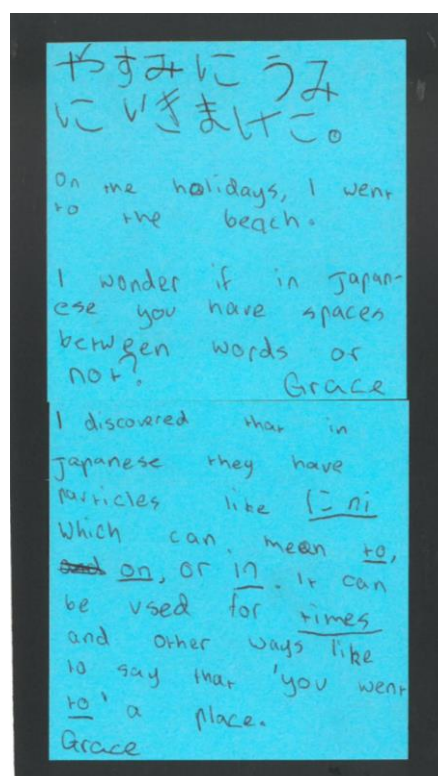 やすみに うみ
に いきましけこ。
On the holidays, I went
to the beach.
I wonder if in Japan-
ese you have spaces
between words or
not?
Grace
I discovered that in
Japanese they have
particles like に ni
which can mean to,
and on, or in. It can
be used for times
and other ways like
to say that 'you went
to' a place.
Grace